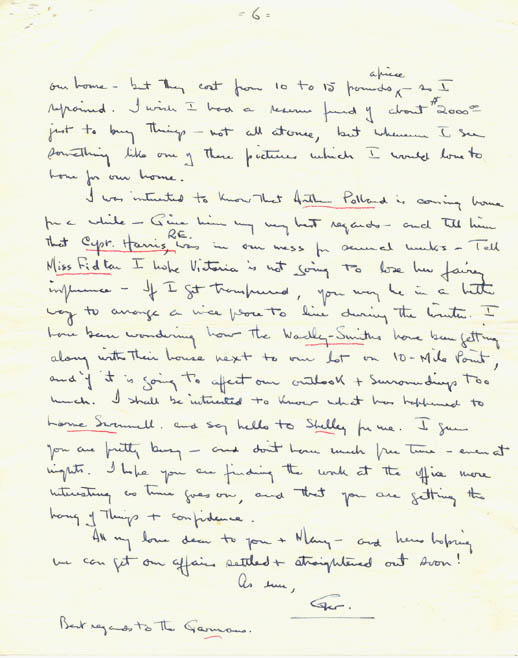 = 6 =
apiece
our home - but they cost from 10 to 15 pounds - so I
refrained. I wish I had a reserve fund of about $2000.00
just to buy things - not all at once, but whenever I see
something like one of these pictures which I would love to
have for our home.
I was interested to know that Arthur Pollard is coming home
for a while - Give him my very best regards - and tell him
that Capt. Harris, R.E. was in our mess for several weeks - Tell
Miss I hope Victoria is not going to lose her
influence - If I get transferred, you may be in a better
way to arrange a nice place to live during the winter. I
have been wondering how the Wadley-Smiths have been getting
along with their house next to our lot on 10-Mile Point,
and if it is going to affect our outlook + surroundings too
much. I shall be interested to know what has happened to
Lorne Swannell. and say hello to Shelley for me. I guess
you are pretty busy - and don't have much free time - even at
nights. I hope you are finding the work at the office more
interesting as time goes on, and that you are getting the
hang of things + confidence.
All my love dear to you + Mary - and here's hoping
we can get our affairs settled + straightened out soon!
As ever,
Ger.
Best regards to the Garmans.